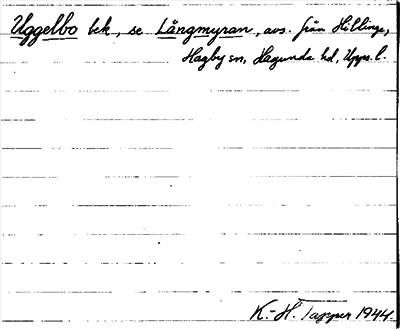 Uggelbo bek, se Långmyran, avs. från Hillinge,
Hagby sn, Hagunda hd, Upps. l.
K.-H. Tapper 1944